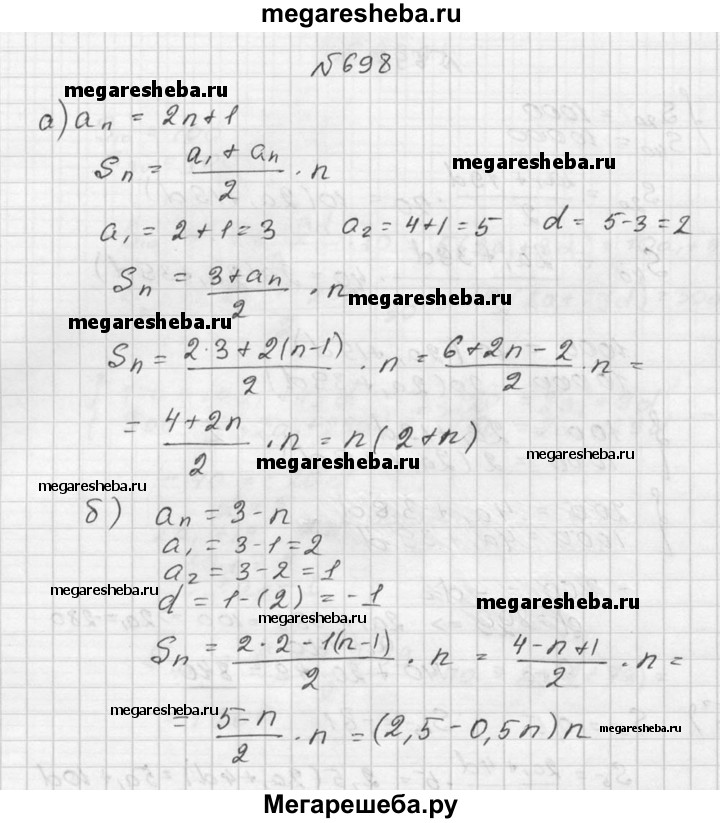 megaresheba.ru
№698
megaresheba.ru
а) aₙ = 2n+1
Sₙ = (a₁ + aₙ)/2 · n
megaresheba.ru
a₁ = 2+1=3 a₂ = 4+1=5 d = 5-3=2
Sₙ = (3+aₙ)/2 · n
megaresheba.ru
megaresheba.ru
Sₙ = (2·3+2(n-1))/2 · n = (6+2n-2)/2 · n =
= (4+2n)/2 · n = n(2+n)
megaresheba.ru
megaresheba.ru
megaresheba.ru
б) aₙ = 3-n
a₁ = 3-1=2
a₂ = 3-2=1
megaresheba.ru
d = 1-(2) = -1
megaresheba.ru
megaresheba.ru
Sₙ = (2·2-1(n-1))/2 · n = (4-n+1)/2 · n =
megaresheba.ru
= (5-n)/2 · n = (2,5-0,5n)n
megaresheba.ru
Мегарешеба.ру